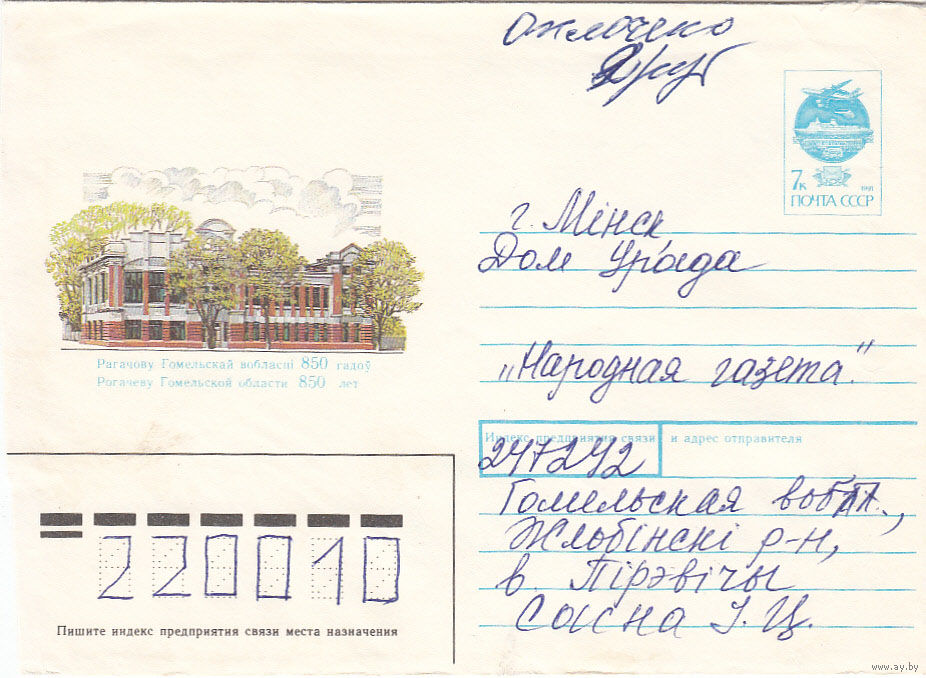 7к 1991
ПОЧТА СССР
г. Мінск
Дом Урада
"Народная газета."
Рагачову Гомельскай вобласці 850 гадоў
Рогачеву Гомельской области 850 лет
Индекс предприятия связи и адрес отправителя
247242
Гомельская вобл.,
Жлобінскі р-н,
в. Пірэвічы
Сосна І. Ц.
220010
Пишите индекс предприятия связи места назначения
www.ay.by